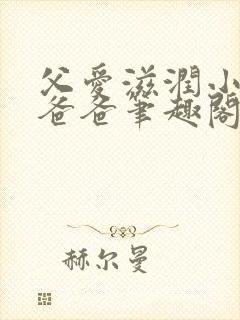 父爱滋润小
爸爸笔趣阁
赫尔曼